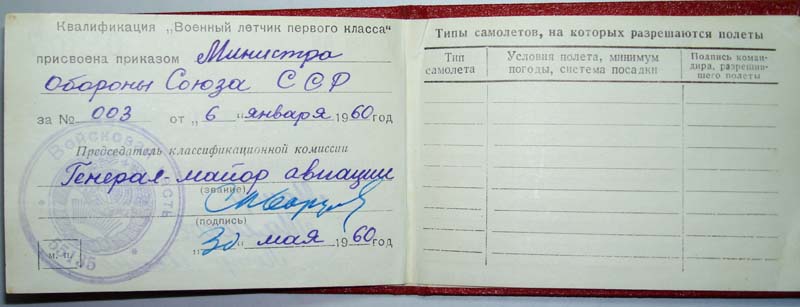 Квалификация „Военный летчик первого класса“
присвоена приказом Министра
Обороны Союза ССР
за № 003 от „ 6 “ января 1960 год
Председатель классификационной комиссии
Генерал-майор авиации
(звание)
(подпись)
„ 30 “ мая 1960 год
м. п.
Войсковая часть
Типы самолетов, на которых разрешаются полеты
Тип самолета
Условия полета, минимум погоды, система посадки
Подпись командира, разрешившего полеты